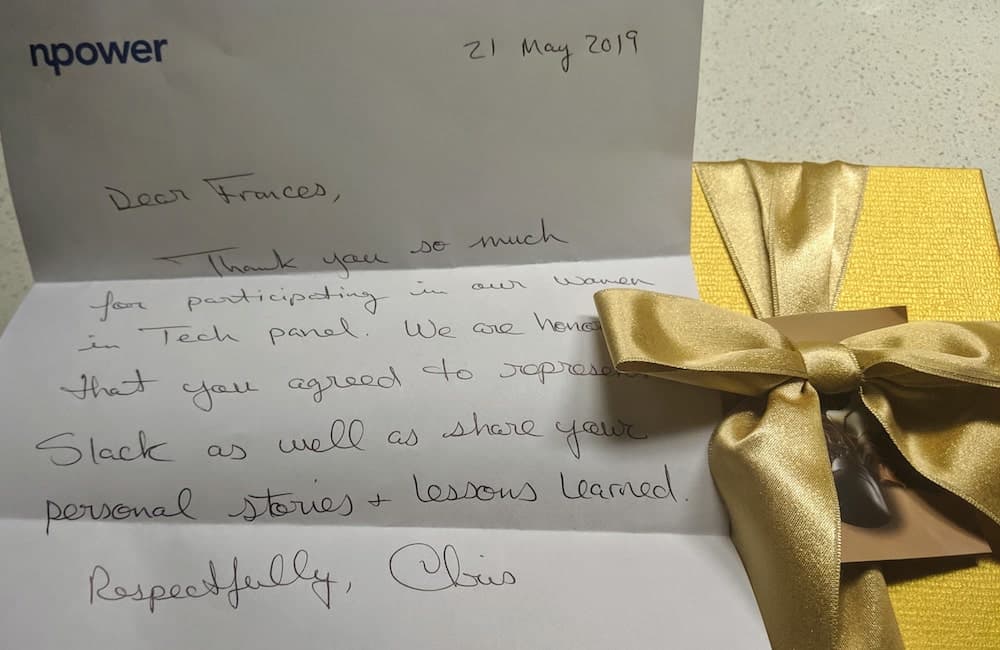 npower
21 May 2019
Dear Frances,
Thank you so much
for participating in our women
in Tech panel. We are hono
that you agreed to represe
Slack as well as share your
personal stories + lessons learned.
Respectfully, Chris